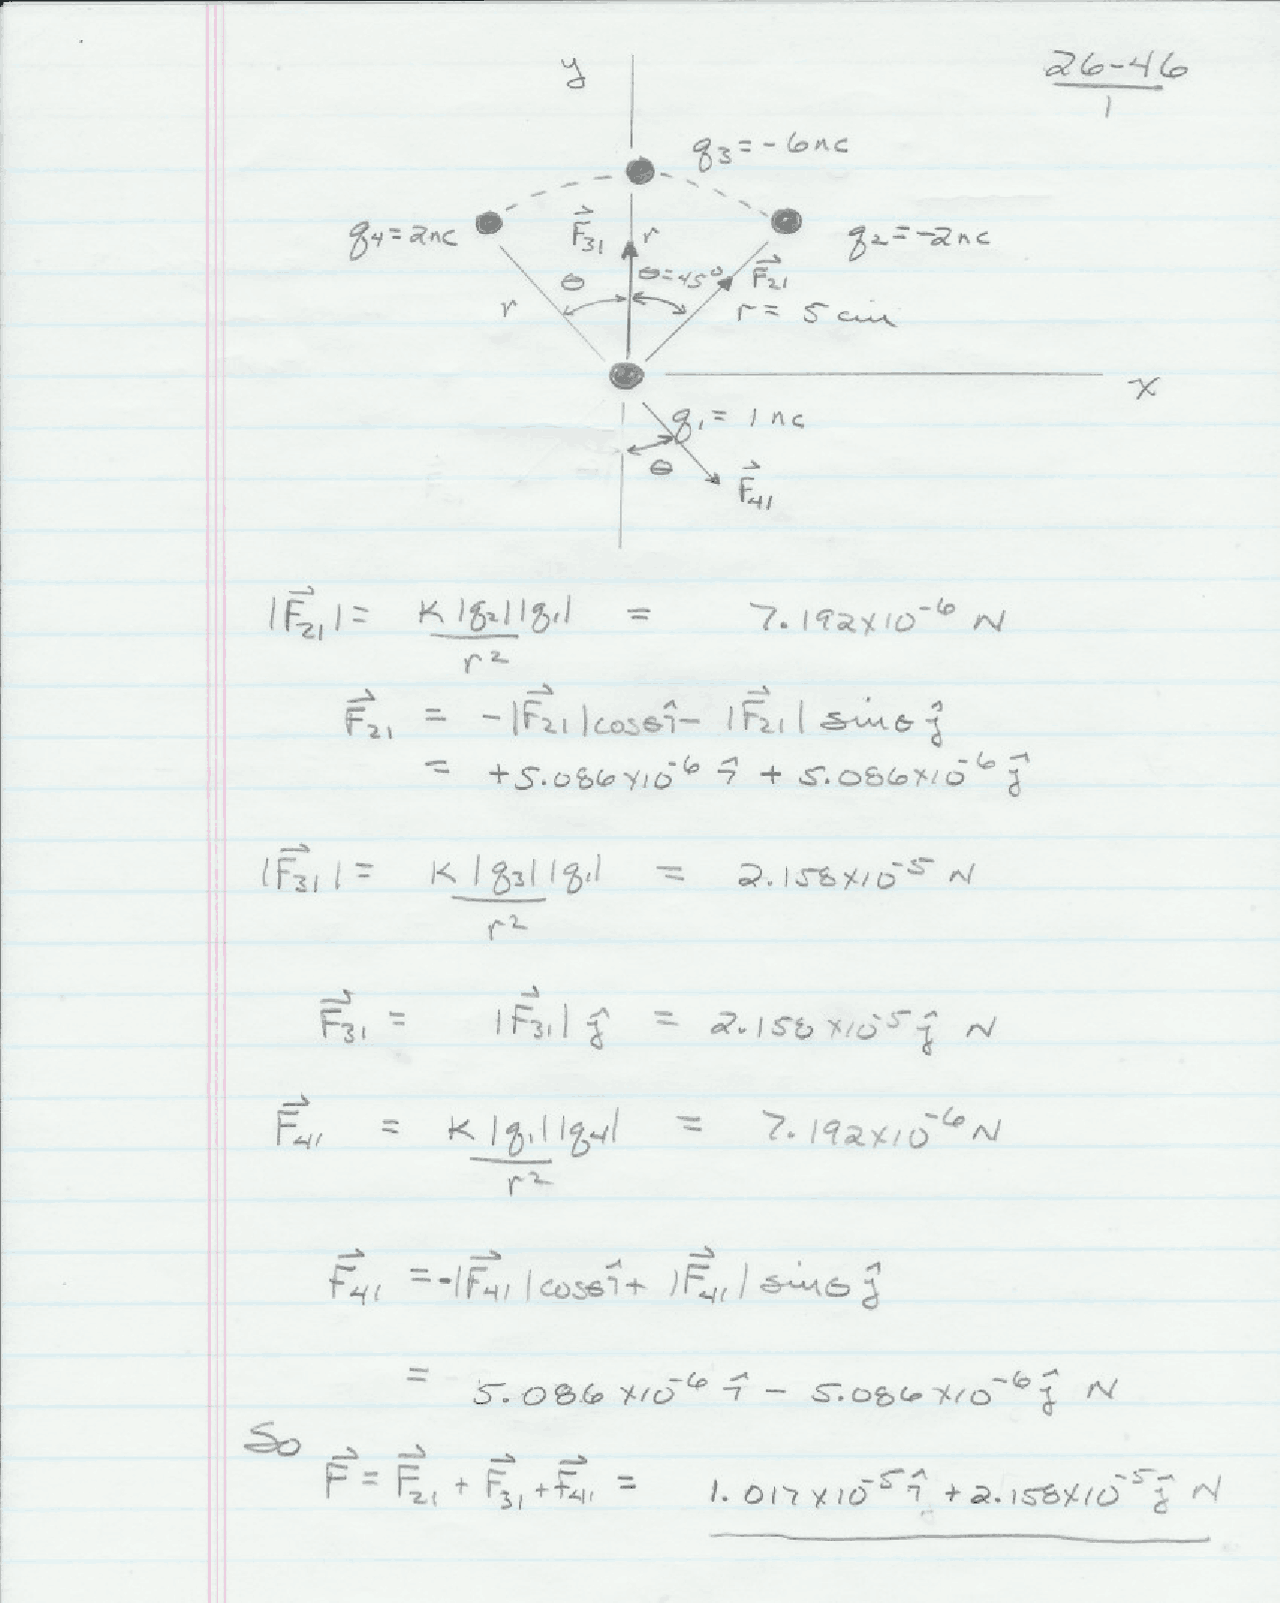 26-46
1
y
q3 = -6nc
q4 = 2nc
F⃗31
r
q2 = -2nc
θ
θ=45°
F⃗21
r
r = 5 cm
x
q1 = 1 nc
θ
F⃗41
|F⃗21| = K|q2||q1| / r² = 7.192×10⁻⁶ N
F⃗21 = -|F⃗21|cosθ î - |F⃗21| sinθ ĵ
= +5.086×10⁻⁶ î + 5.086×10⁻⁶ ĵ
|F⃗31| = K|q3||q1| / r² = 2.158×10⁻⁵ N
F⃗31 = |F⃗31| ĵ = 2.158×10⁻⁵ ĵ N
F⃗41 = K|q1||q4| / r² = 7.192×10⁻⁶ N
F⃗41 = -|F⃗41|cosθ î + |F⃗41| sinθ ĵ
= 5.086×10⁻⁶ î - 5.086×10⁻⁶ ĵ N
So
F⃗ = F⃗21 + F⃗31 + F⃗41 = 1.017×10⁻⁵ î + 2.158×10⁻⁵ ĵ N